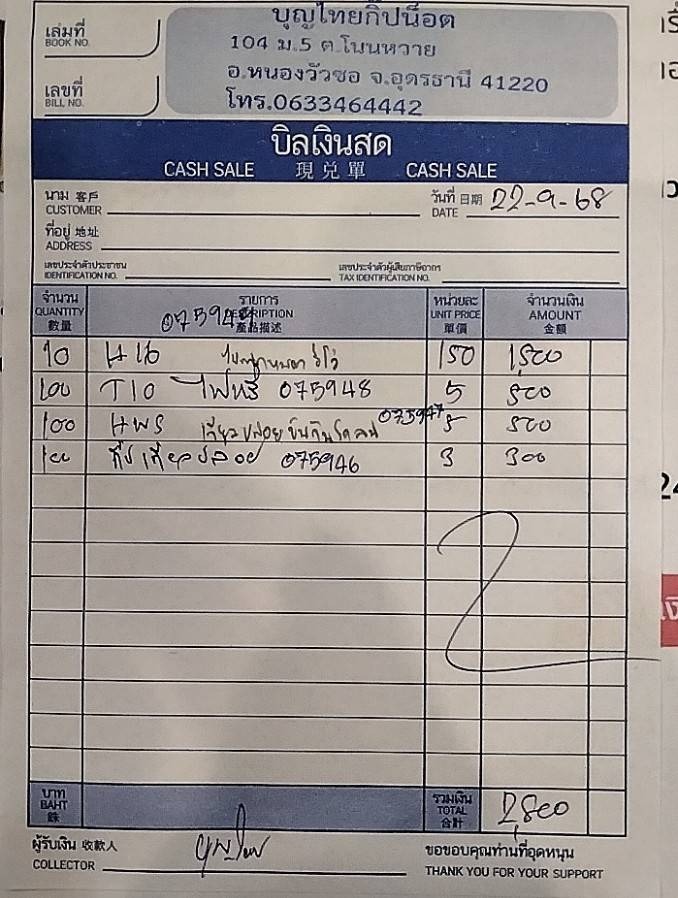 บุญไทยกิ๊ปน็อต
104 ม.5 ต.โนนหวาย
อ.หนองวัวซอ จ.อุดรธานี 41220
โทร.0633464442
เล่มที่
BOOK NO.
เลขที่
BILL NO.
บิลเงินสด
CASH SALE 現兑單 CASH SALE
นาม 客戶
CUSTOMER
วันที่ 日期 22-9-68
DATE
ที่อยู่ 地址
ADDRESS
เลขประจำตัวประชาชน
IDENTIFICATION NO.
เลขประจำตัวผู้เสียภาษีอากร
TAX IDENTIFICATION NO.
จำนวน รายการ หน่วยละ จำนวนเงิน
QUANTITY DESCRIPTION UNIT PRICE AMOUNT
數量 產品描述 單價 金額
075949
10 H16 150 1,500
100 T10 ไฟหรี่ 075948 5 500
100 075947 5 500
100 กิ๊ปเกียร์ปล่อย 075946 3 300
บาท
BAHT
銖
รวมเงิน
TOTAL
合計
2,800
ผู้รับเงิน 收款人
COLLECTOR
ขอขอบคุณท่านที่อุดหนุน
THANK YOU FOR YOUR SUPPORT